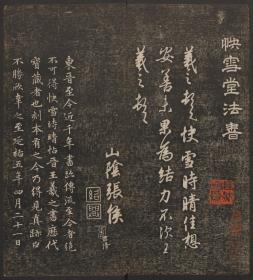 快雪堂法書
羲之頓首快雪時晴佳想
安善未果為結力不次王
羲之頓首
山陰張侯
東晉至今近千年書跡傳流至今者絕
不可得快雪時晴帖晉王羲之書歷代
寶藏者也刻本有之今乃得見真跡臣
不勝欣幸之至延祐五年四月二十一日